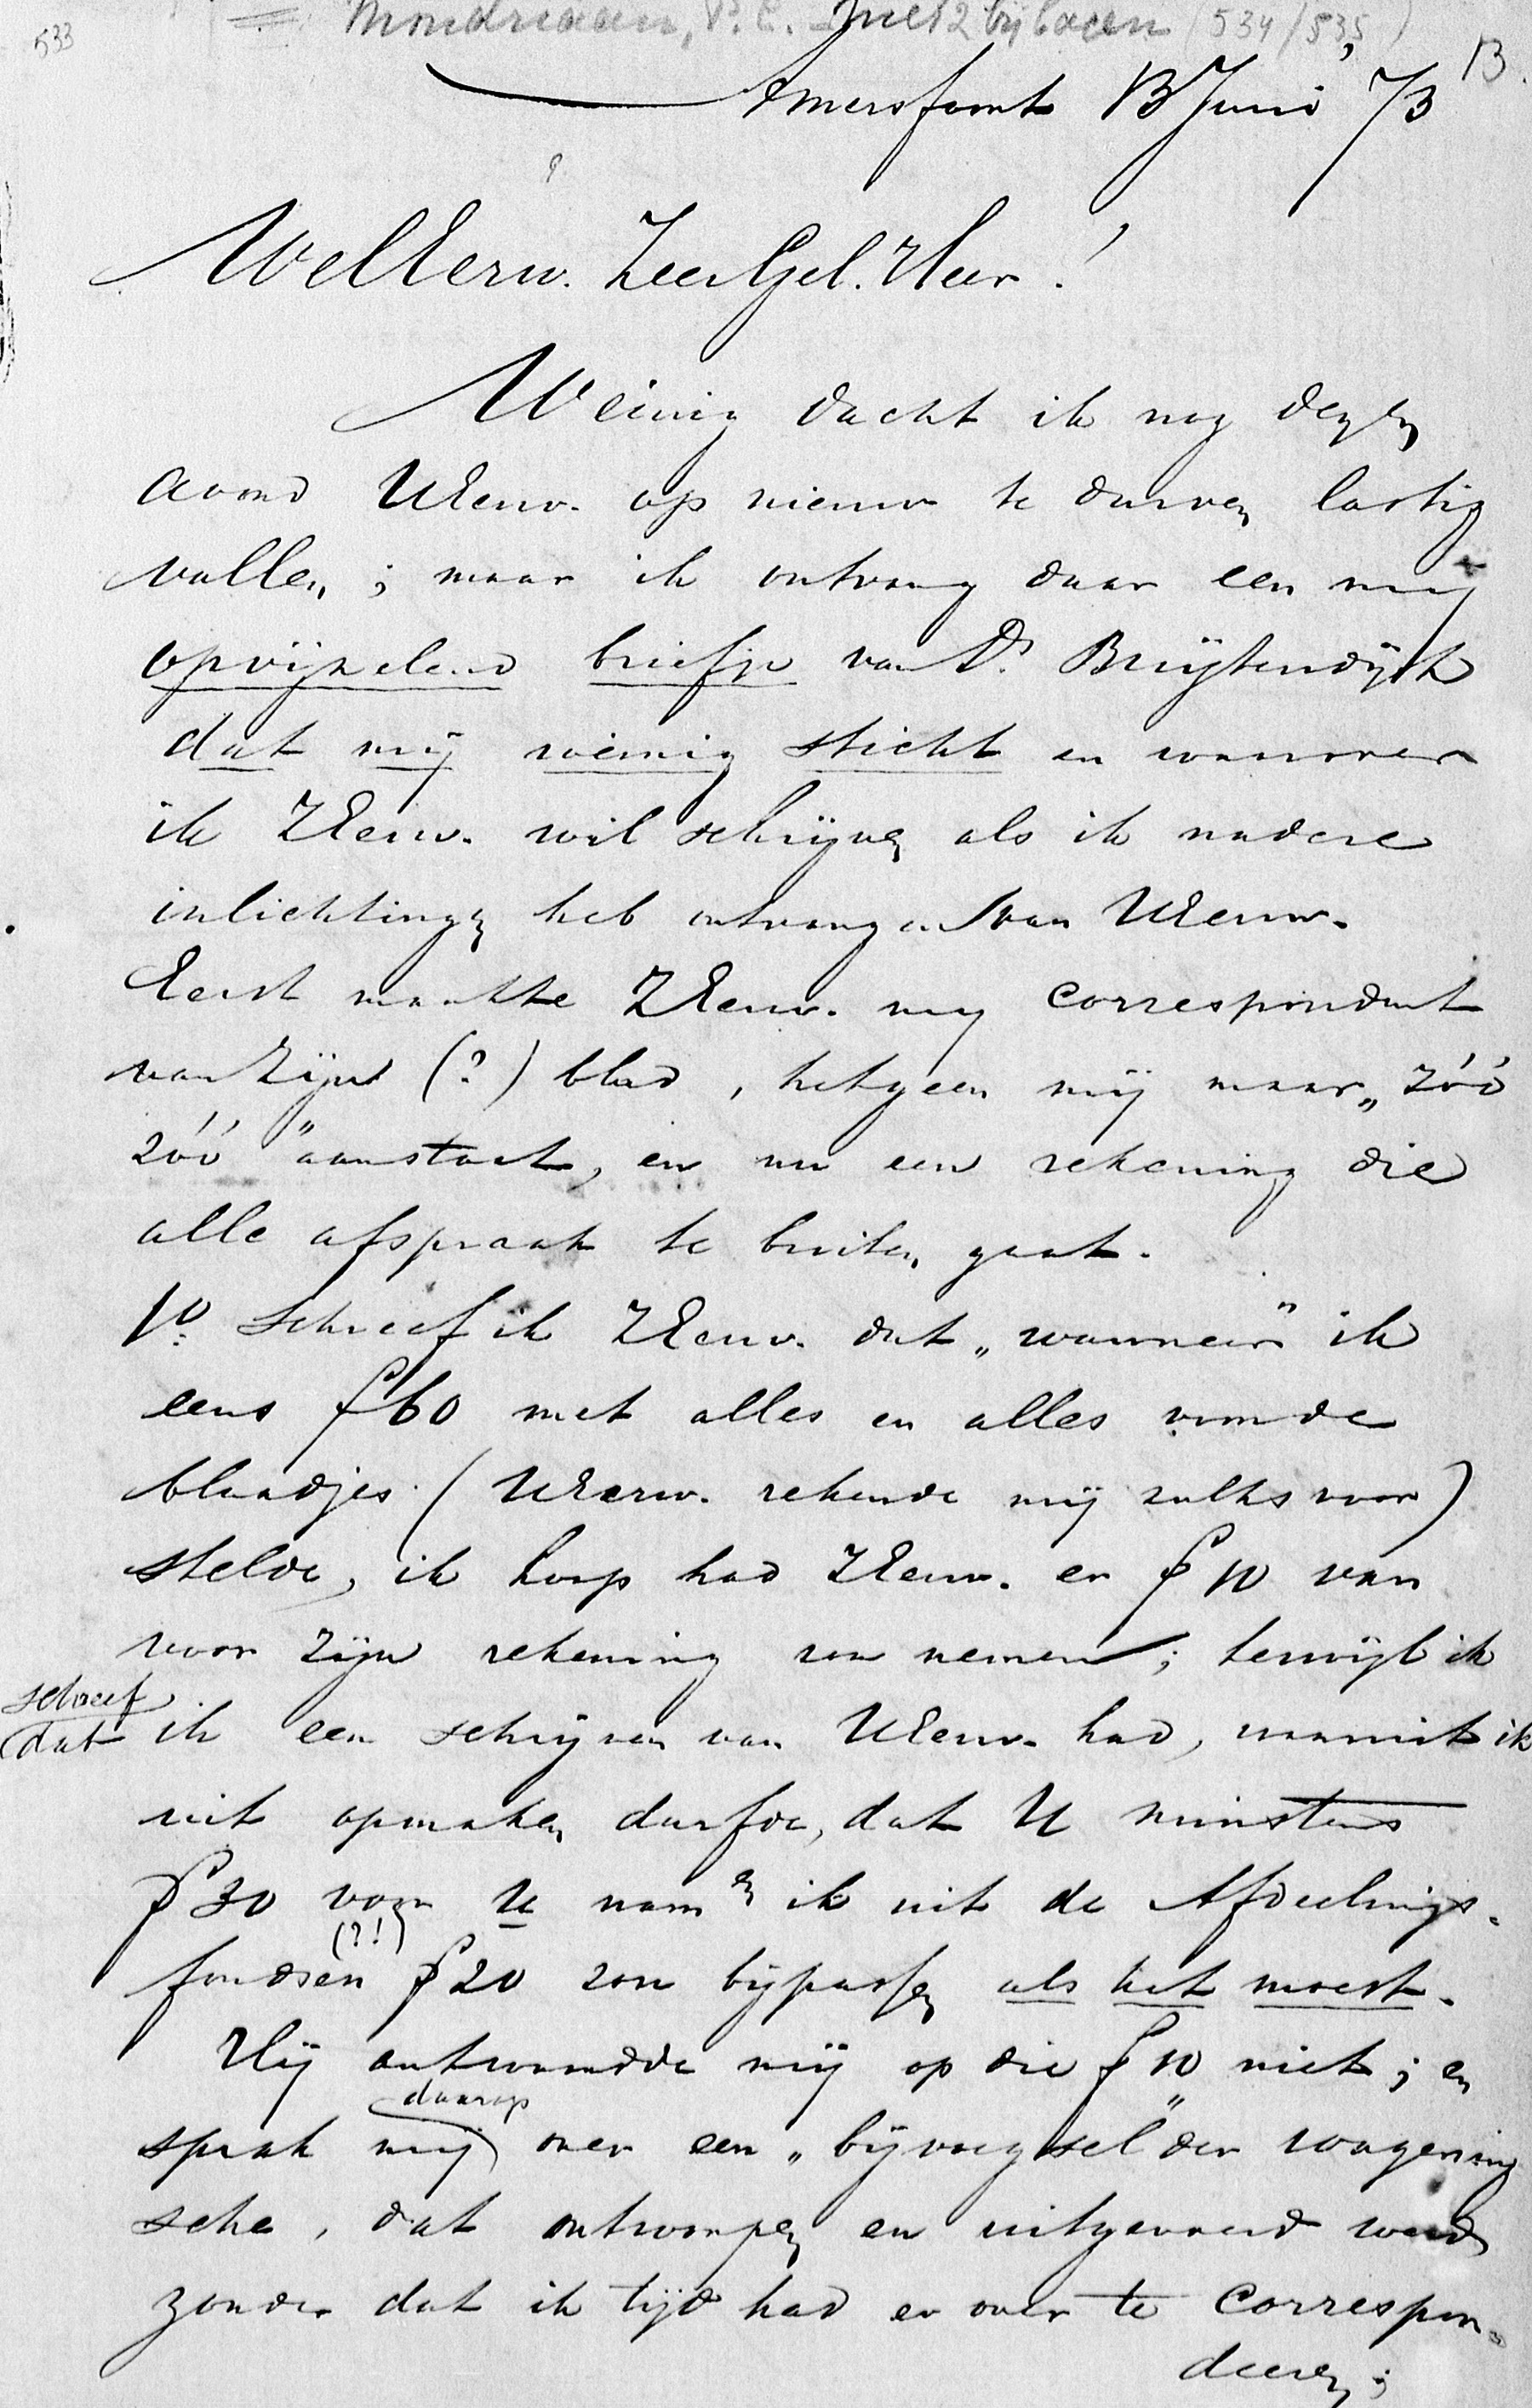 533
Mondriaan, P.C. met 2 bijlagen (534/535)
13.
Amersfoort 13 Juni '73
WelEerw. ZeerGel. Heer!
Weinig dacht ik nog dezen
avond UEerw. op nieuw te durven lastig
vallen; maar ik ontvang daar een mij
opvijzelend briefje van Ds. Bruijtendijk
dat mij weinig sticht en waarover
ik ZEerw. wil schrijven als ik nadere
inlichtingen heb ontvangen van UEerw.
Eerst maakte ZEerw. mij correspondent
van zijn (?) blad, hetgeen mij maar „zóó
zóó" aanstaat, en nu een rekening die
alle afspraak te buiten gaat.
1o. Schreef ik ZEerw. dat „wanneer" ik
eens f 60 met alles en alles voor de
blaadjes (UEerw. rekende mij zulks voor)
stelde, ik hoop had ZEerw. er f 10 van
voor zijn rekening zou nemen; terwijl ik
schreef
dat ik een schrijven van UEerw. had, waaruit ik
uit opmaken durfde, dat U minstens
f 30 voor U nam en ik uit de Afdeelings-
(?!)
fondsen f 20 zou bijpassen als het moest.
Hij antwoordde mij op die f 10 niet; en
daarop
sprak mij over een „bijvoegsel" der Wagening
sche, dat ontworpen en uitgevoerd werd
zonder dat ik tijd had er over te correspon-
deeren;